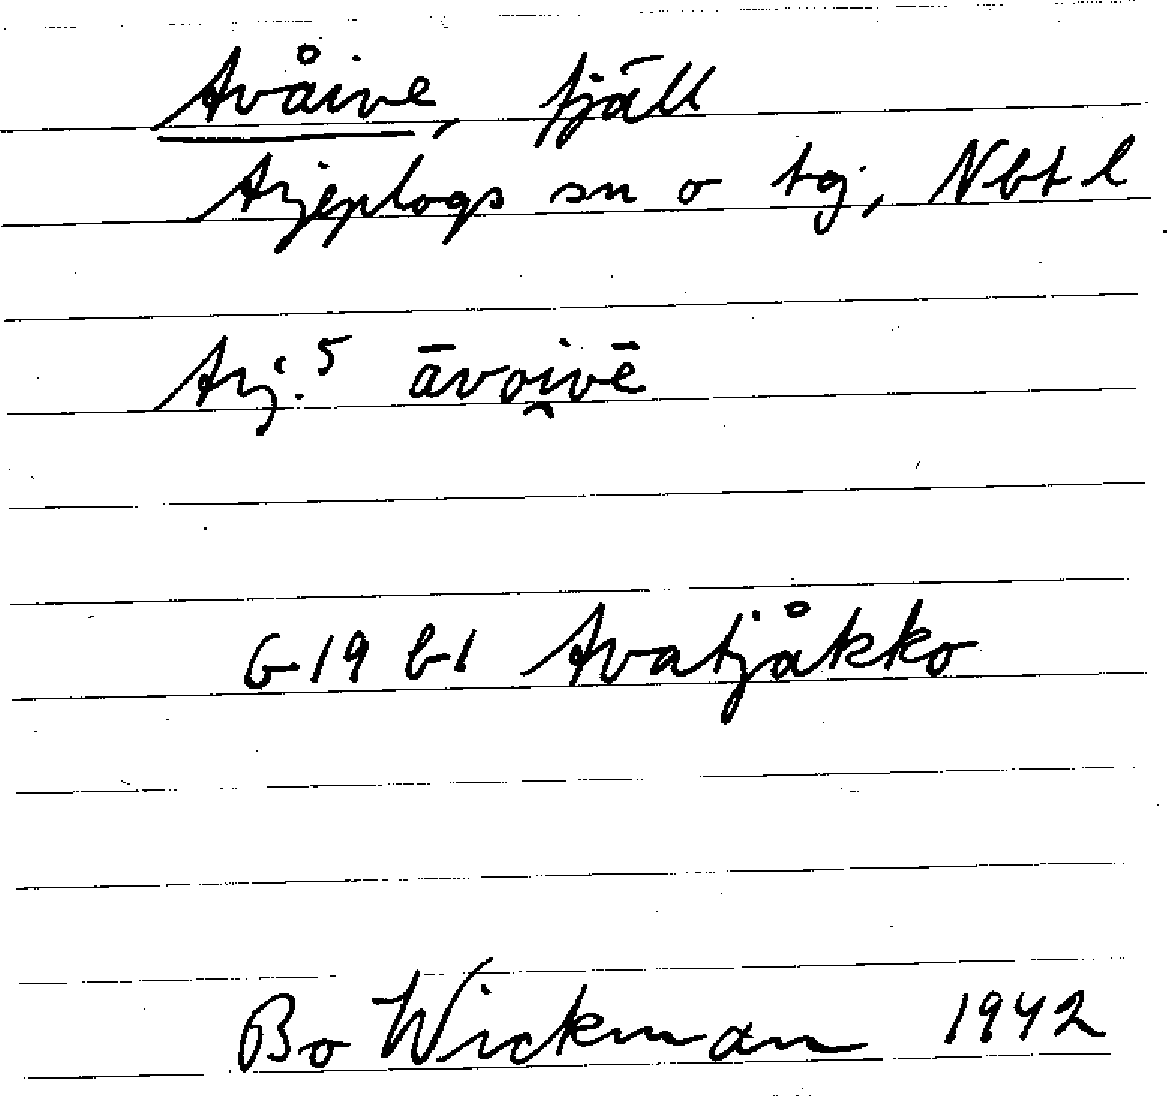 Avåive, fjäll
Arjeplogs sn o tg, Nbt l
Arj.⁵ āvoi̯vē
G 19 bt Avatjåkko
Bo Wickman 1942